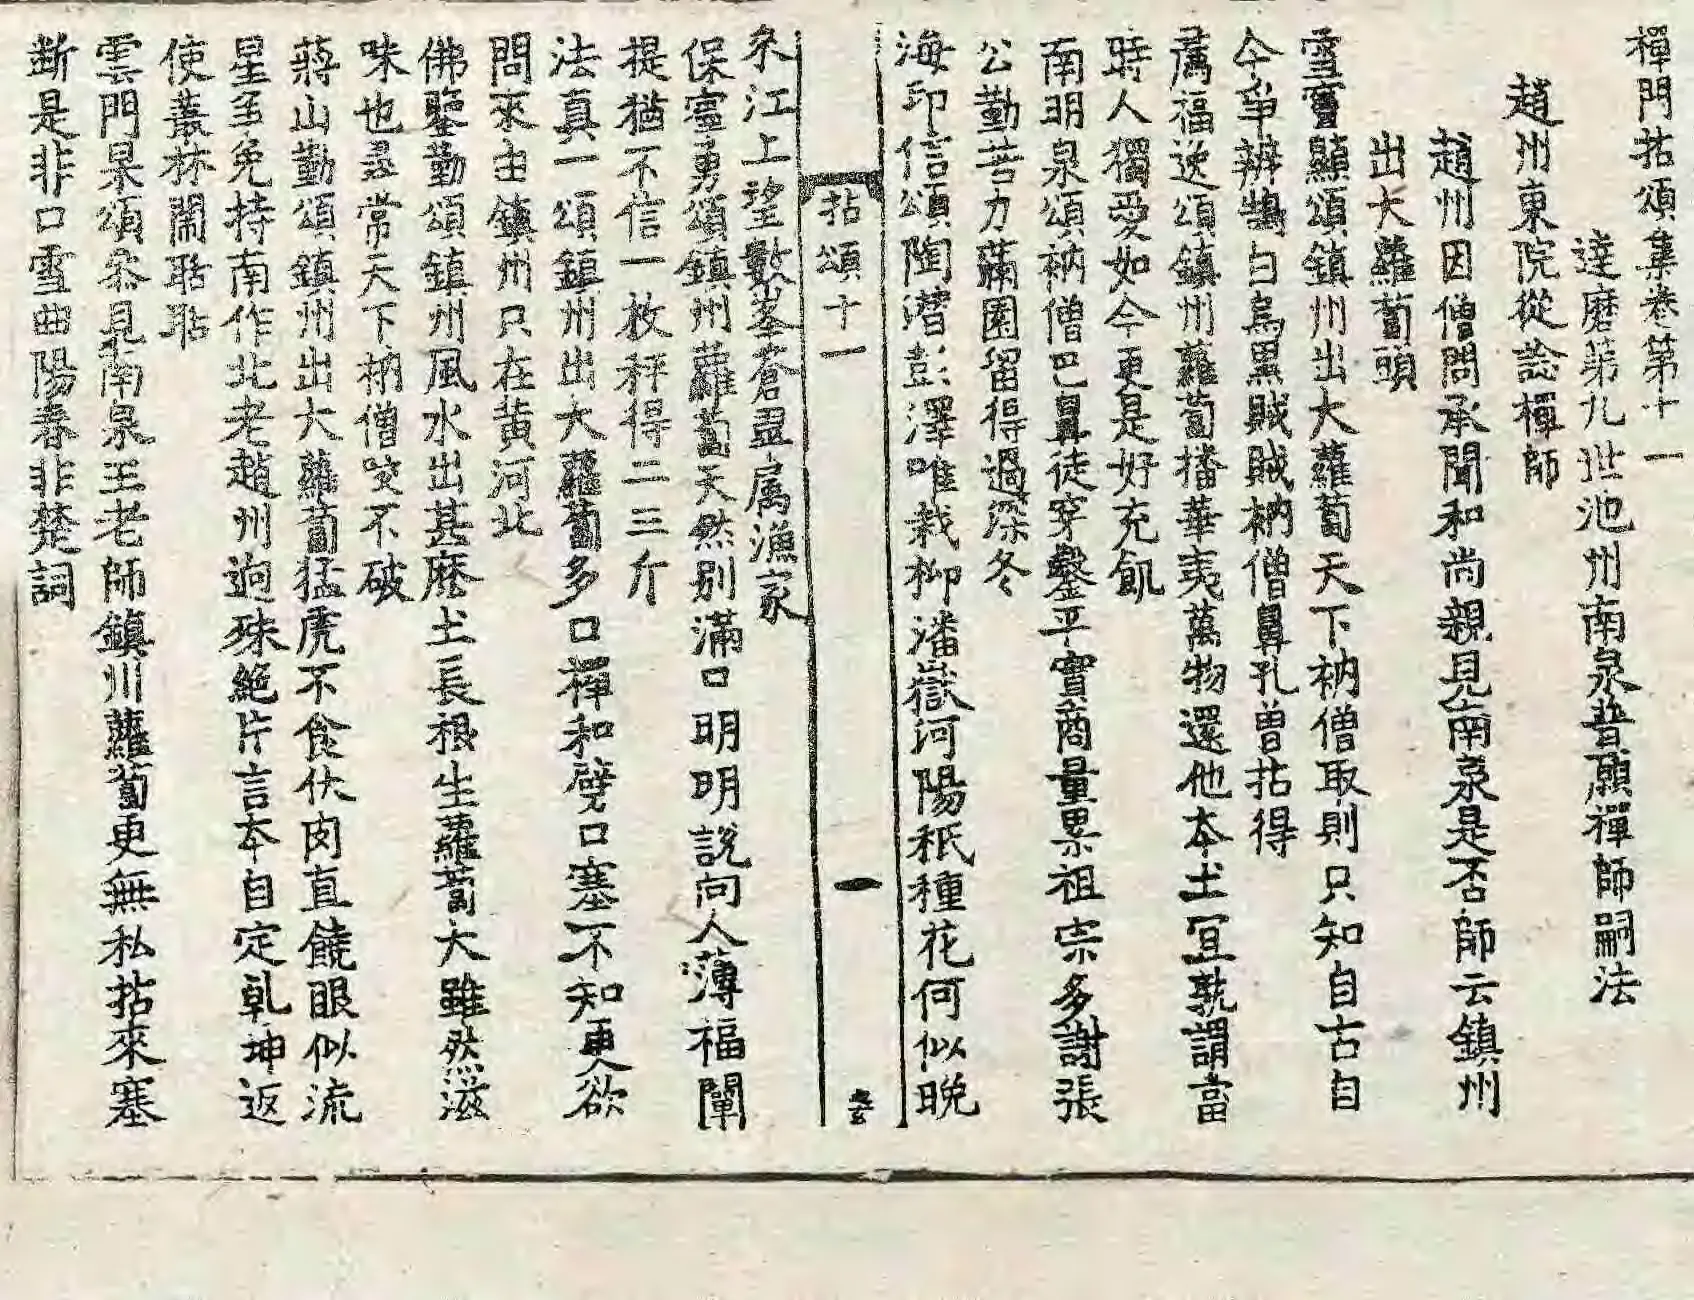 禪門拈頌集卷第十一
達磨第九世池州南泉普願禪師嗣法
趙州東院從諗禪師
趙州因僧問承聞和尚親見南泉是否師云鎮州
出大蘿蔔頭
雪竇顯頌鎮州出大蘿蔔天下衲僧取則只知自古自
今爭辨鵠白烏黑賊賊衲僧鼻孔曾拈得
薦福逸頌鎮州蘿蔔播華夷萬物還他本土宜孰謂當
時人獨愛如今更是好充飢
南明泉頌衲僧巴鼻徒穿鑿平實商量累祖宗多謝張
公勤苦力滿園留得過深冬
海印信頌陶潛彭澤唯栽柳潘嶽河陽秖種花何似晚
拈頌十一
一
來江上望數峯蒼翠屬漁家
保寧勇頌鎮州蘿蔔天然別滿口明明說向人薄福闡
提猶不信一枚秤得二三斤
法真一頌鎮州出大蘿蔔多口禪和劈口塞不知更欲
問來由鎮州只在黃河北
佛鑒勤頌鎮州風水出甚麽土長根生蘿蔔大雖然滋
味也尋常天下衲僧咬不破
蔣山勤頌鎮州出大蘿蔔猛虎不食伏肉直饒眼似流
星至免持南作北老趙州逈殊絶片言本自定乹坤返
使叢林鬧聒聒
雲門杲頌叅見南泉王老師鎮州蘿蔔更無私拈來塞
斷是非口雪曲陽春非楚詞